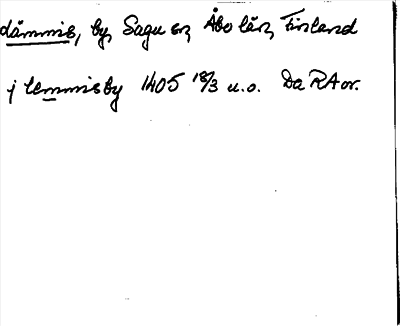 dämmis, by, Sagu sn, Åbo län, Finland
j lemmisby 1405 18/3 u.o. Da RA or.